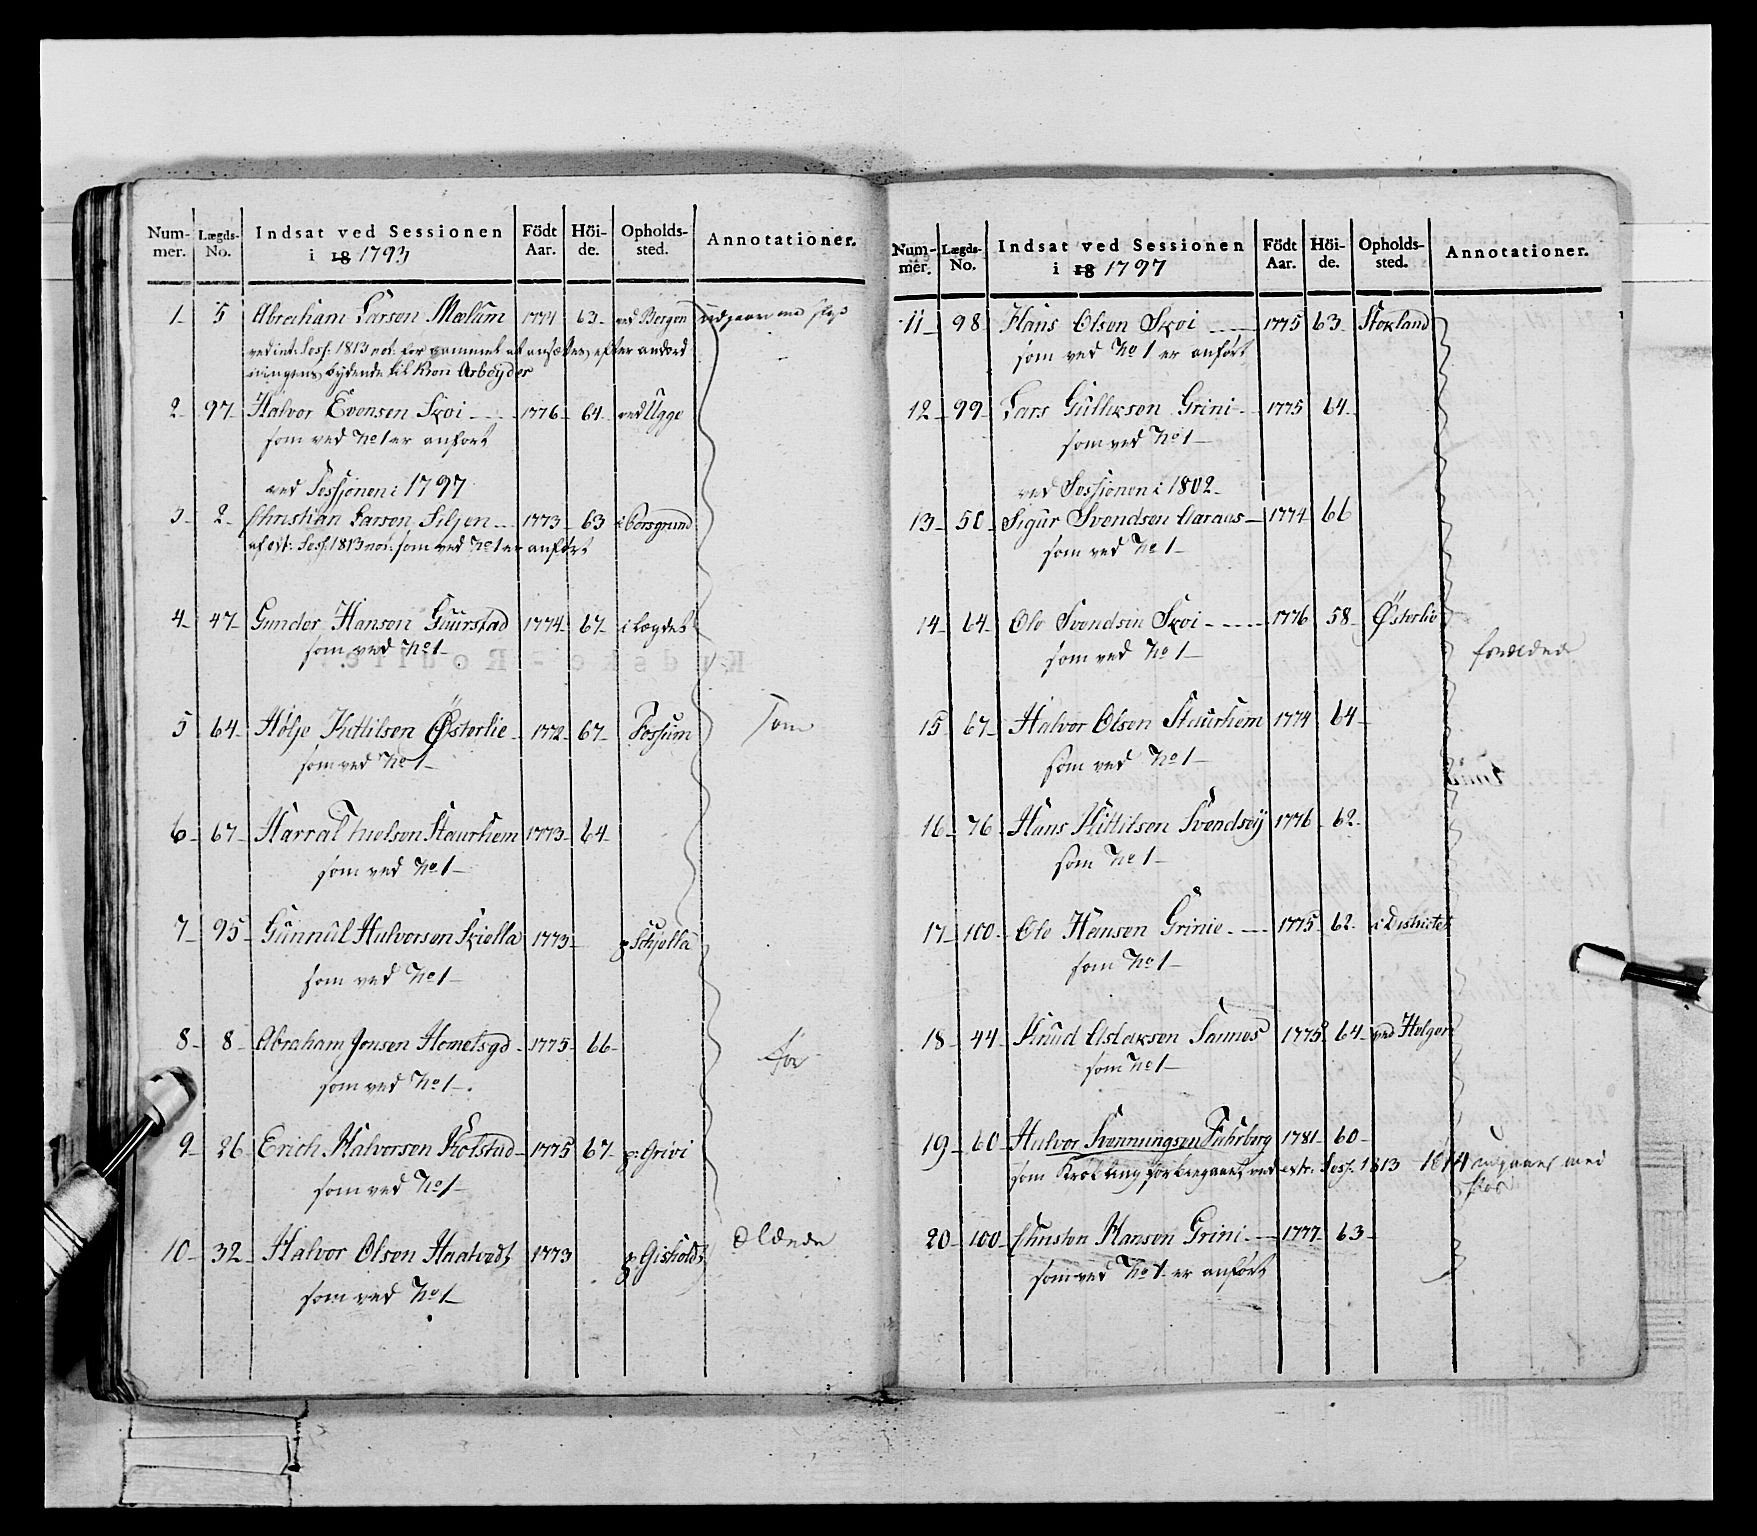 Num-mer. Lægds-No. Indsat ved Sessionen i 18 1793 Födt Aar. Höi-de. Opholds-sted. Annotationer.
1 5 Abraham Larsen Mælum 1774 63 ved Bergen udgaaer med
ved int: Sess: 1813 not: for gammel at ansættes, efter anord
ningens bydende til Kron Arbeyder
2 97 Halvor Evensen Skoi 1776 64 ved Ugge
som ved No 1 er anført
ved Sessionen i 1797
3 2 Christian Larsen Siljen 1773 63 i Porsgrund
Sess: 1813 not: som ved No 1 er anført
4 47 Gunder Hansen Guurstad 1774 67 i Lægdet
som ved No 1
5 64 Høljo Kittilsen Østerlie 1772 67 Fossum Som
som ved No 1
6 67 Harral Nielsen Staurhem 1773 64
som ved No 1
7 95 Gunnul Halvorsen Skiella 1773 p Schjella
som ved No 1
8 8 Abraham Jonsen 1775 66 for
som ved No 1
9 26 Erich Halvorsen Kolstad 1775 67 p: Grivi
som ved No 1
10 32 Halvor Olsen Haatvedt 1773 p. Gisholdt
som ved No 1
Num-mer. Lægds-No. Indsat ved Sessionen i 18 1797 Födt Aar. Höi-de. Opholds-sted. Annotationer.
11 98 Hans Olsen Skoi 1775 63 Stokland
som ved No 1 er anført
12 99 Lars Gulliksen Grini 1775 64
som ved No 1
ved Sessionen i 1802
13 50 Sigur Svendsen Aaraas 1774 66
som ved No 1
14 64 Ole Svendsen Skoi 1776 58 Østerlie
som ved No 1 forældede
15 67 Halvor Olsen Staurhem 1774 64
som ved No 1
16 76 Hans Kittilsen Svendsøy 1776 62
som No 1
17 100 Ole Hansen Grinie 1775 62 i Districtet
som No 1
18 44 Knud Aslaksen Sannes 1775 64 ved Helgen
som No 1
19 60 Halvor Svennungsen Fuhrberg 1781 60
som Krøbling forbiegaaet, ved extr: Sess: 1813 1814 udgaaer med
20 100 Christen Hansen Grini 1777 63
som ved No 1 er anført